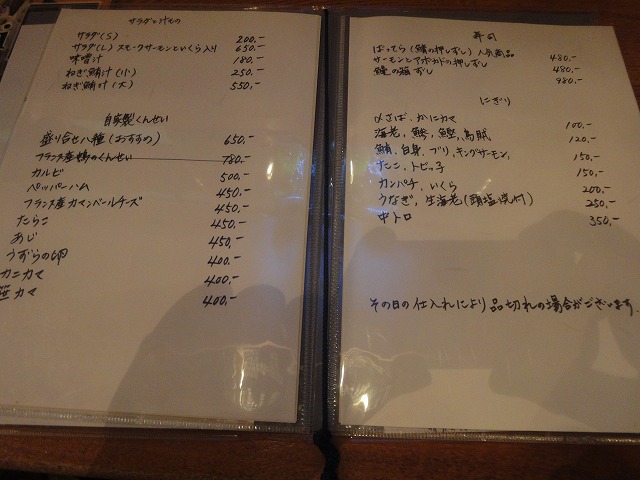 サラダと汁もの
サラダ(S) 200.-
サラダ(L) スモークサーモンといくら入り 650.-
味噌汁 180.-
ねぎ鮪汁(小) 250.-
ねぎ鮪汁(大) 550.-
自家製くんせい
盛り合せ八種(おすすめ) 650.-
フランス産鴨のくんせい 780.-
カルビ 500.-
ペッパーハム 450.-
フランス産カマンベールチーズ 450.-
たらこ 450.-
あじ 450.-
うずらの卵 400.-
カニカマ 400.-
笹カマ 400.-
寿司
ばってら(鯖の押しずし)人気商品 480.-
サーモンとアボカドの押しずし 480.-
鰻の箱ずし 980.-
にぎり
〆さば、かにカマ 100.-
海老、鯵、鰹、烏賊 120.-
鮪、白身、ブリ、キングサーモン、 150.-
たこ、トビっ子 150.-
カンパチ、いくら 200.-
うなぎ、生海老(頭塩焼付) 250.-
中トロ 350.-
その日の仕入れにより品切れの場合がございます.